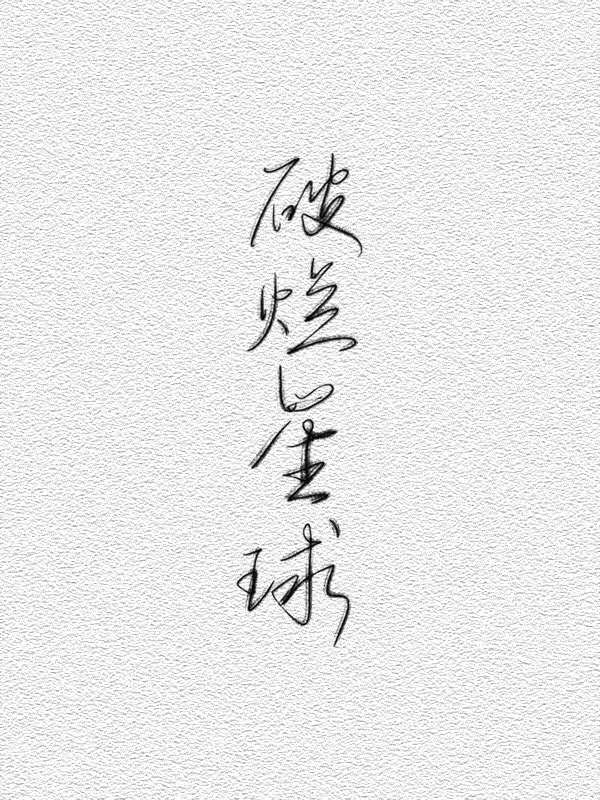 破烂星球